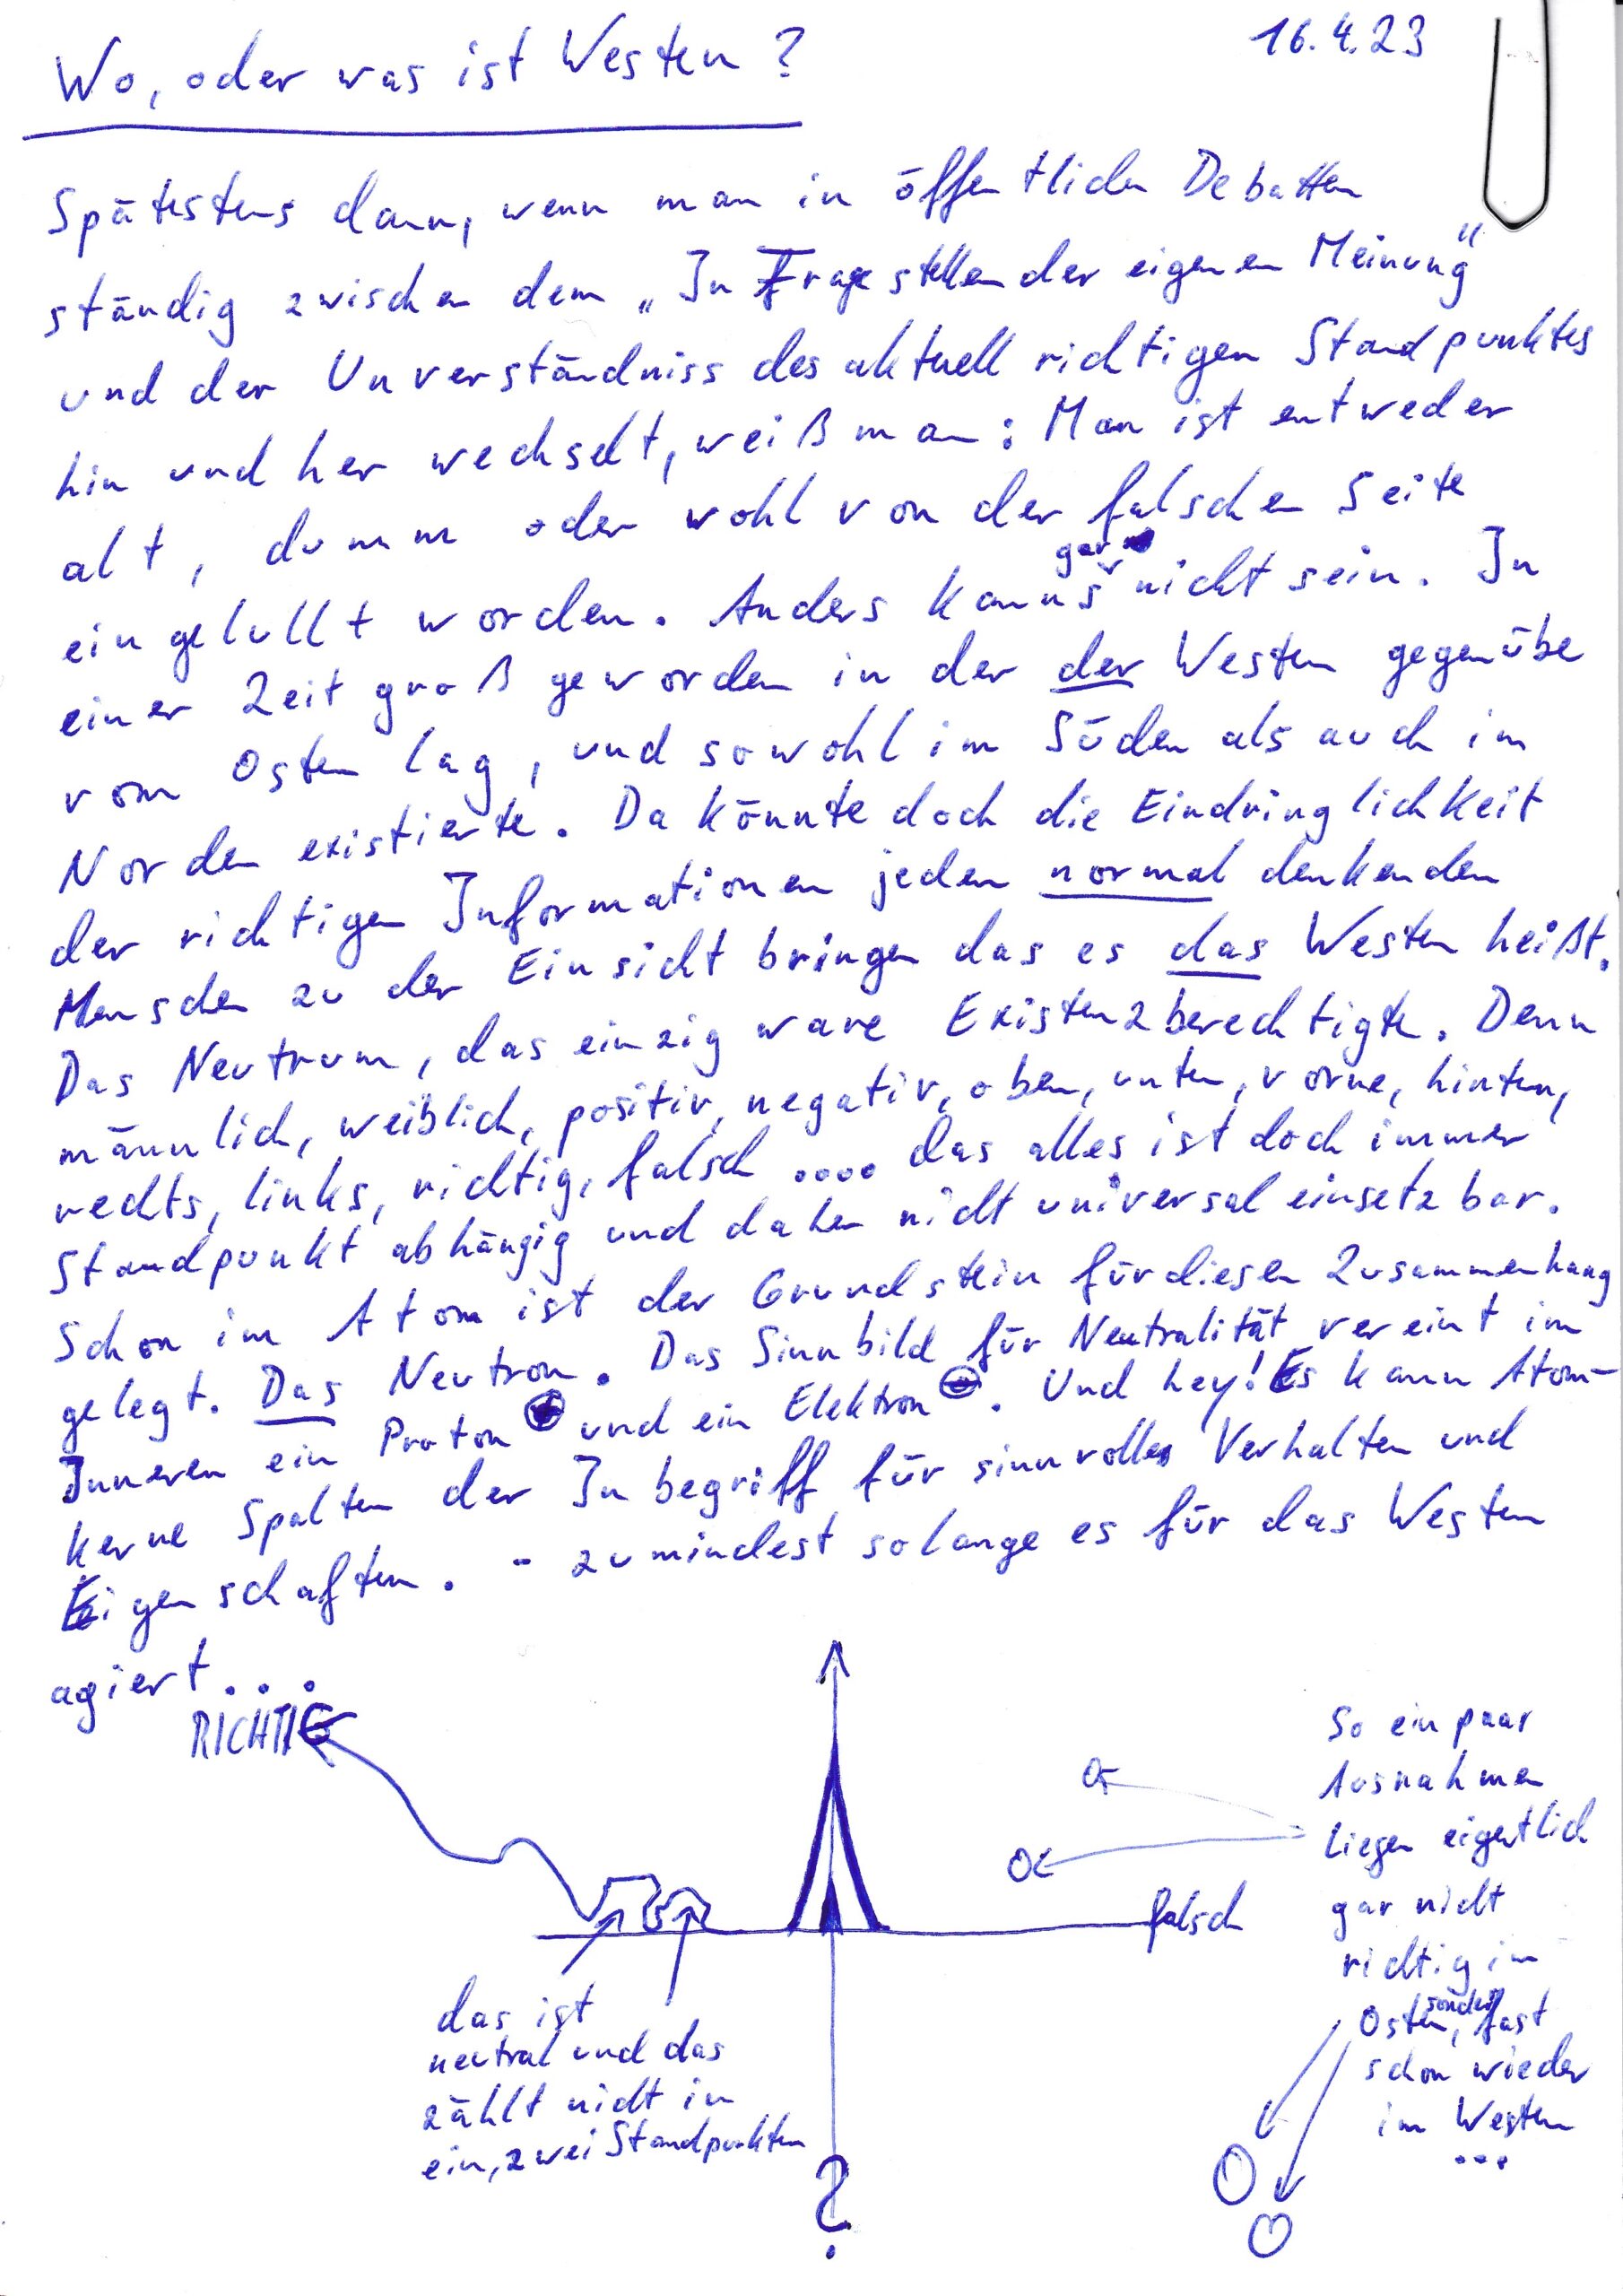 Wo, oder was ist Westen?
16.4.23
Spätestens dann, wenn man in öffentlichen Debatten
ständig zwischen dem „In Frage stellen der eigenen Meinung“
und der Unverständniss des aktuell richtigen Standpunktes
hin und her wechselt, weiß man: Man ist entweder
alt, dumm oder wohl von der falschen Seite
eingelullt worden. Anders kanns gar nicht sein. In
einer Zeit groß geworden in der der Westen gegenübe
vom Osten lag, und sowohl im Süden als auch im
Norden existierte. Da könnte doch die Eindringlichkeit
der richtigen Informationen jeden normal denkenden
Menschen zu der Einsicht bringen das es das Westen heißt.
Das Neutrum, das einzig ware Existenzberechtigte. Denn
männlich, weiblich, positiv, negativ, oben, unten, vorne, hinten,
rechts, links, richtig, falsch .... das alles ist doch immer
Standpunkt abhängig und daher nicht universal einsetzbar.
Schon im Atom ist der Grundstein für diesen Zusammenhang
gelegt. Das Neutron. Das Sinnbild für Neutralität vereint im
Inneren ein Proton ⊕ und ein Elektron ⊖. Und hey! Es kann Atom-
kerne Spalten der Inbegriff für sinnvolles Verhalten und
Eigenschaften. - zumindest solange es für das Westen
agiert...
RICHTIG
falsch
das ist
neutral und das
zählt nicht in
ein, zwei Standpunkten
?
So ein paar
Ausnahmen
liegen eigentlich
gar nicht
richtig im
Osten, sondern fast
schon wieder
im Westen
...